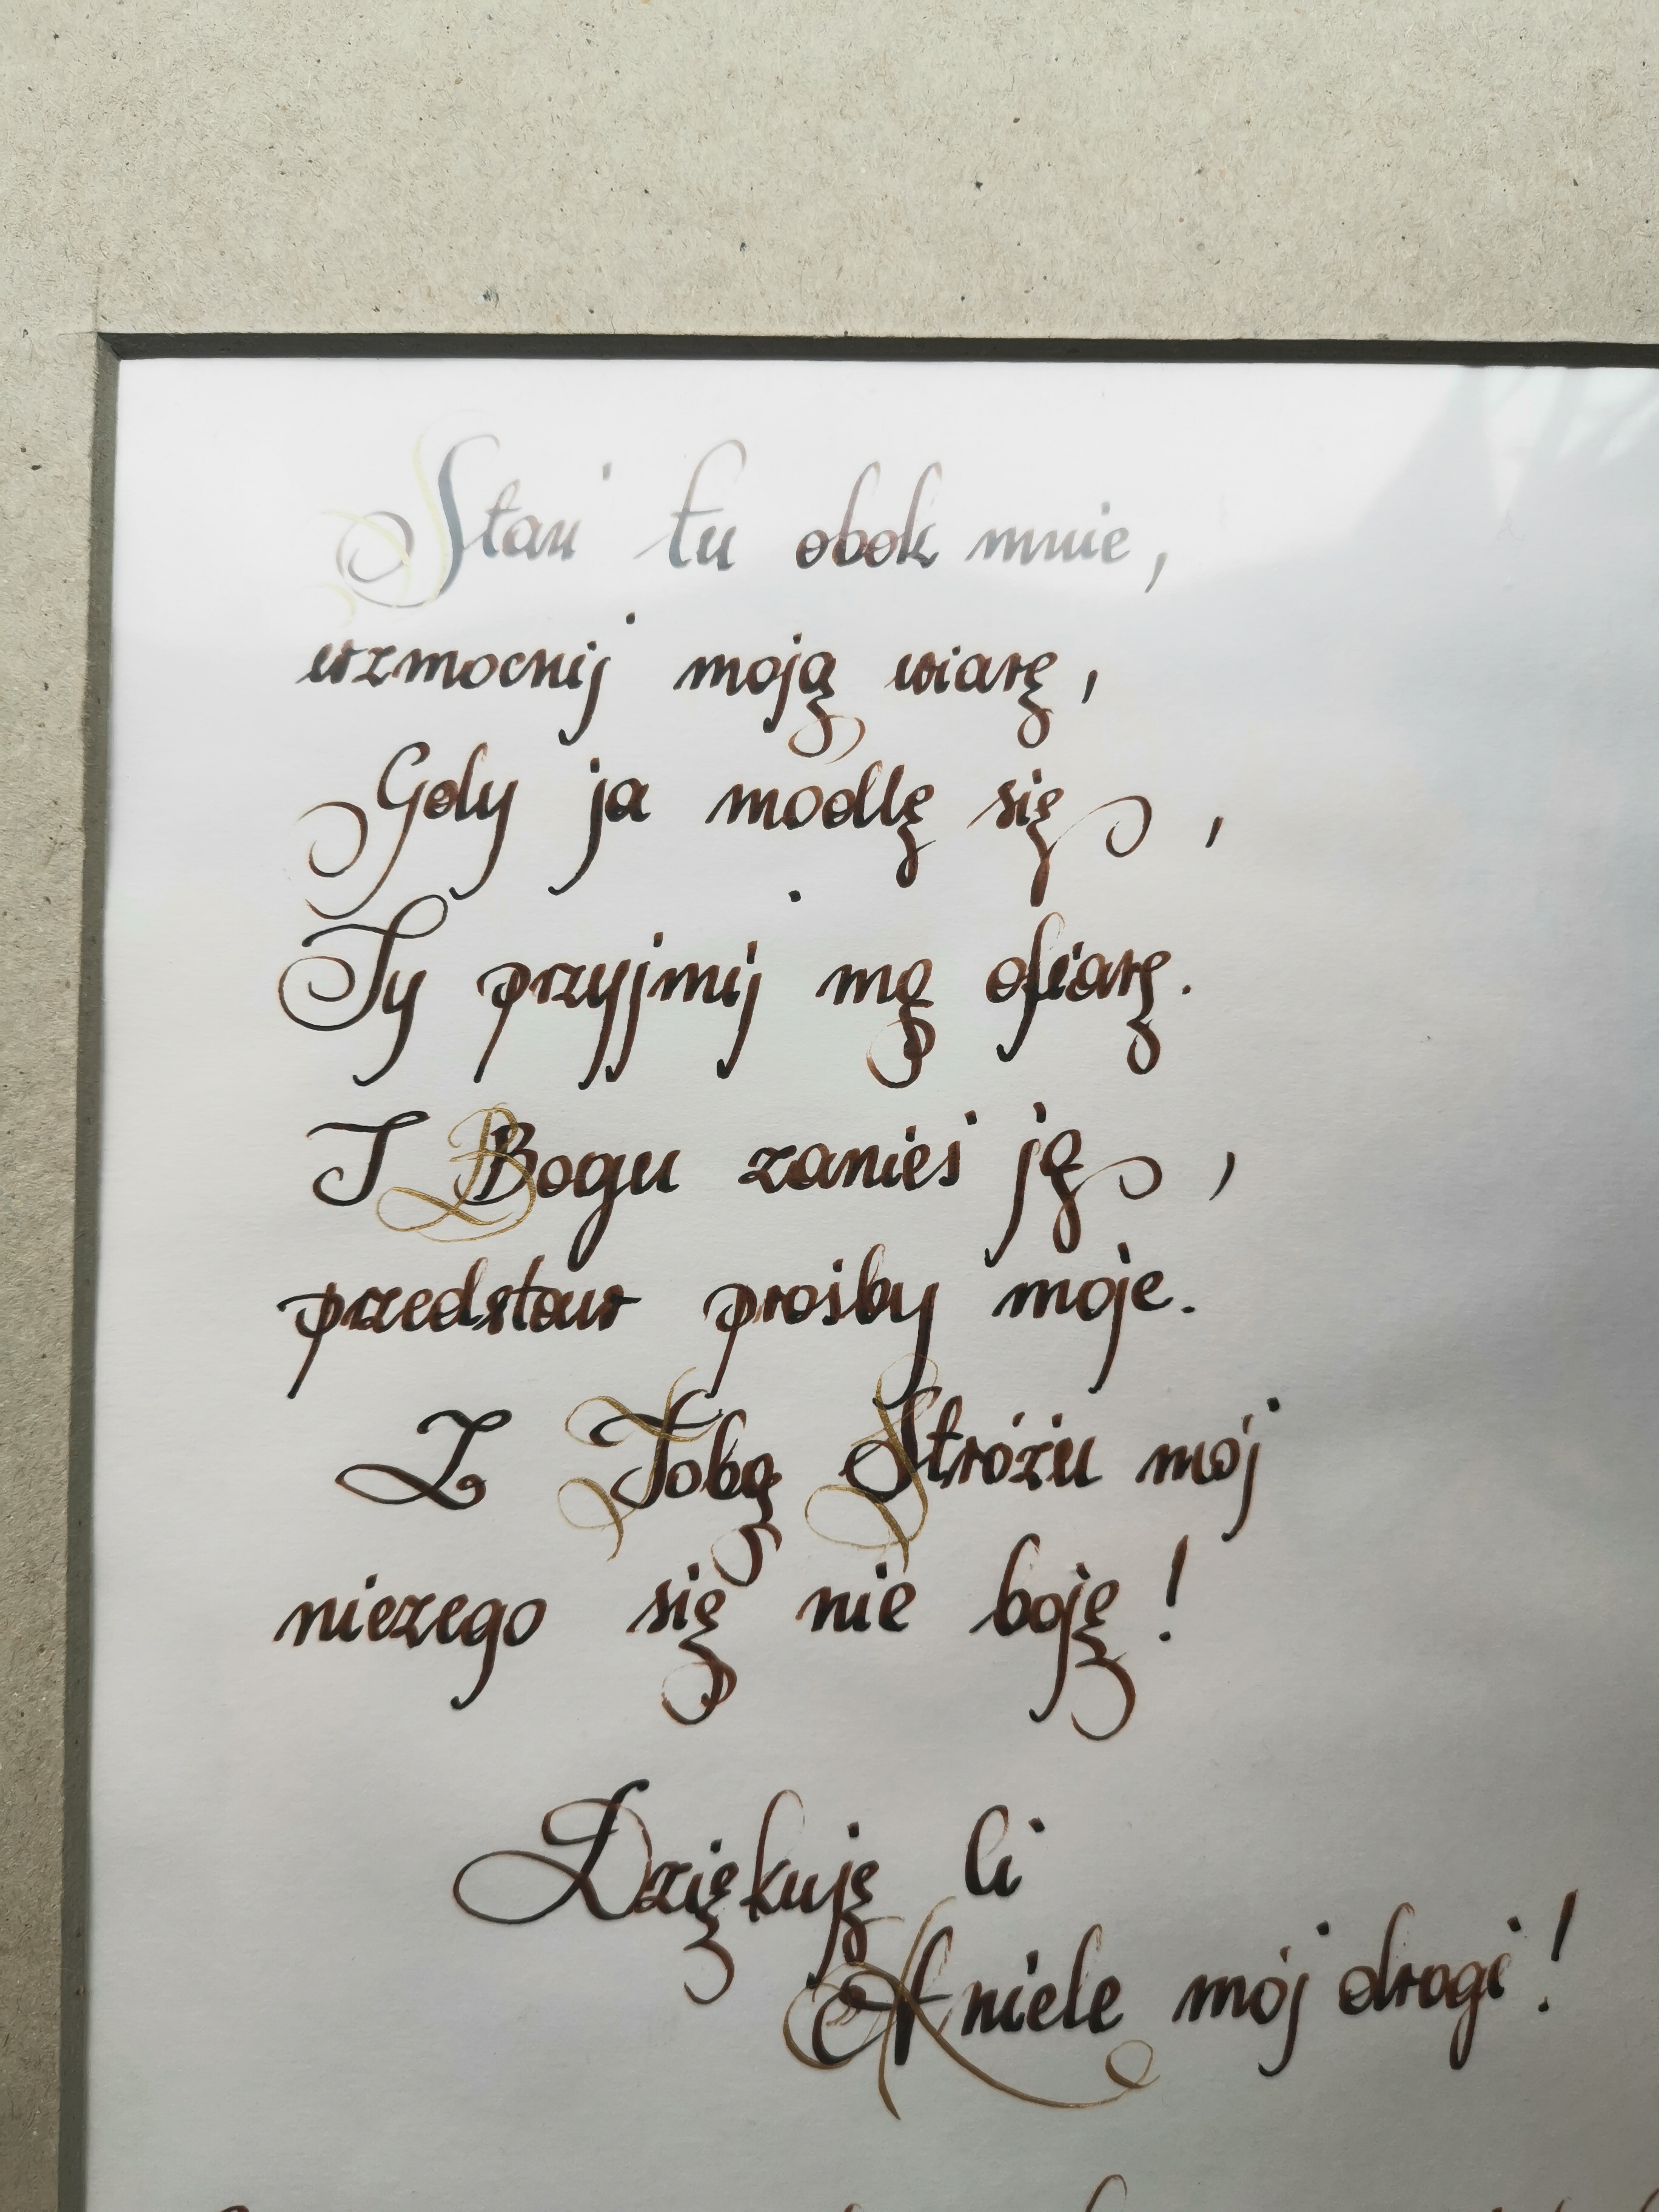 Stań tu obok mnie,
wzmocnij moją wiarę,
Gdy ja modlę się,
Ty przyjmij mą ofiarę.
I Bogu zanieś ją,
przedstaw prośby moje.
Z Tobą Stróżu mój
niczego się nie boję!
Dziękuję Ci
Aniele mój drogi!